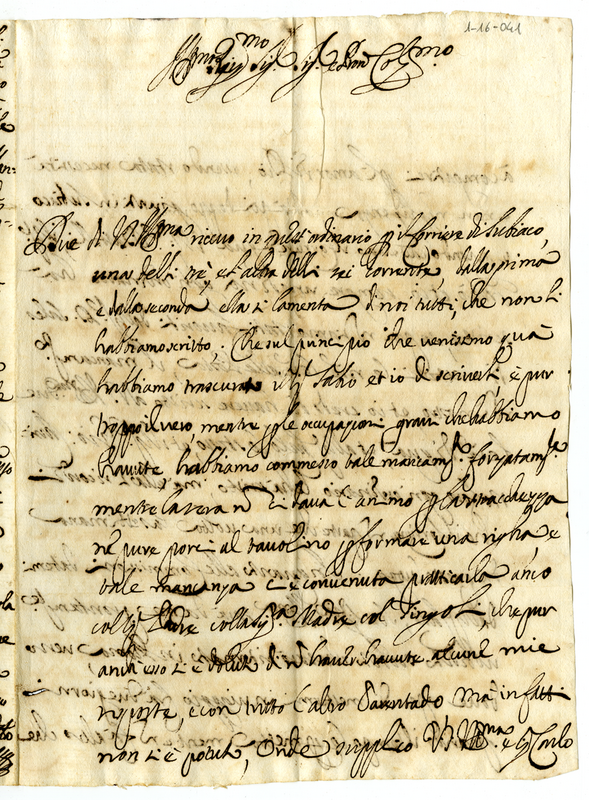 1-16-041
Ill.mo Sig.r Sig.r e Pron Col.mo
Due di V.S. Ill.ma ricevo in quest ordinario p il Corriere di Subiaco,
una delli tre, et l'altra delli sei Corrente, dalla prima
e dalla seconda ella si lamenta di noi tutti, che non li
habbiamo scritto, Che sul principio che venissemo quà
habbiamo trascurato et io di scriverli, è pur
troppo il vero, mentre p le occupazioni gravi che habbiamo
havute habbiamo commesso tale mancam.to forzatam.te
mentre la sera nō ci dava l'animo p la stracchezza
nè pure porci al tavolino p formare una righa, e
tale mancanza ci è convenuta praticarla anco
colla Sig.ra Madre col che pur
anch'esso si è doluto di nō haver havute alcune mie
risposte, e con tutto l'altro ma in fatti
non si è potuto, Onde supplico V.S. Ill.ma e Carlo